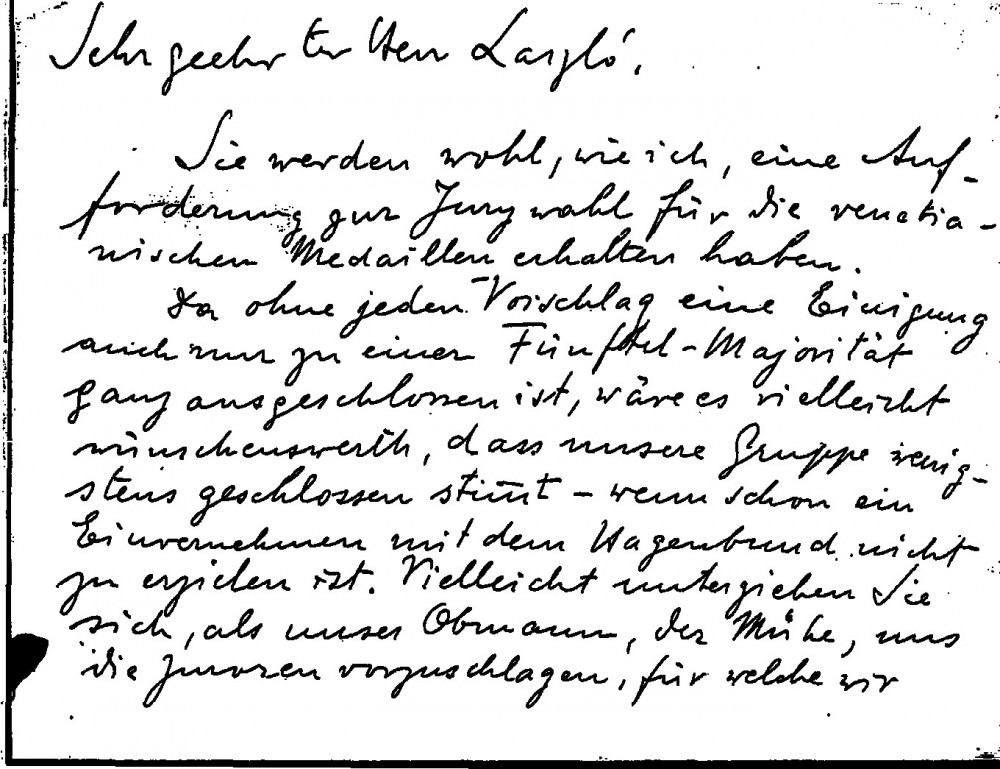 Sehr geehrter Herr Laszló,
Sie werden wohl, wie ich, eine Auf-
forderung zur Jurywahl für die venetia-
nischen Medaillen erhalten haben.
Da ohne jeden Vorschlag eine Einigung
auch nur zu einer Fünftel-Majorität
ganz ausgeschlossen ist, wäre es vielleicht
wünschenswerth, dass unsere Gruppe wenig-
stens geschlossen stim̄t – wenn schon ein
Einvernehmen mit dem Hagenbund nicht
zu erzielen ist. Vielleicht unterziehen Sie
sich, als unser Obmann, der Mühe, uns
die Juroren vorzuschlagen, für welche wir